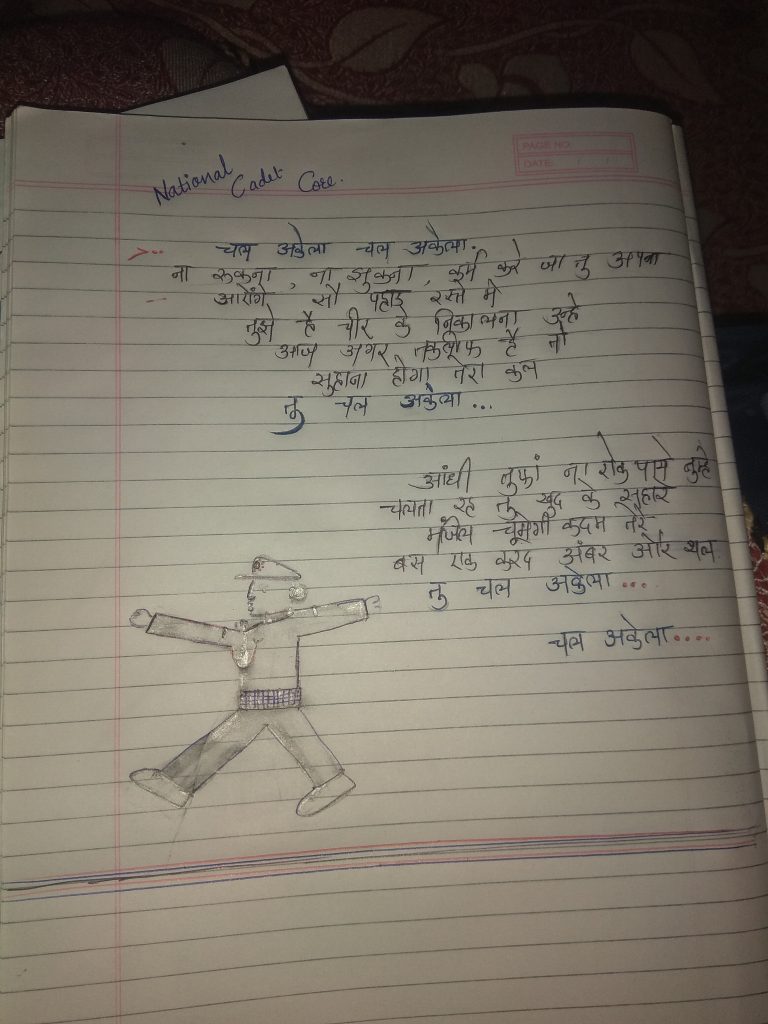 PAGE NO.
DATE: / /
National Cadet Core.
चल अकेला चल अकेला.
ना रुकना, ना झुकना, कर्म करे जा तु अपना
आऐंगे सौ पहाड़ रस्ते में
तुझे है चीर के निकालना उन्हे
आज अगर तकलीफ है तो
सुहाना होगा तेरा कल
तु चल अकेला...
आंधी तुफां ना रोक पासे तुम्हे
चलता रह तु खुद के सहारे
मंजिल चूमेगी कदम तेरे
बस एक करद अंबर और थल
तु चल अकेला...
चल अकेला....